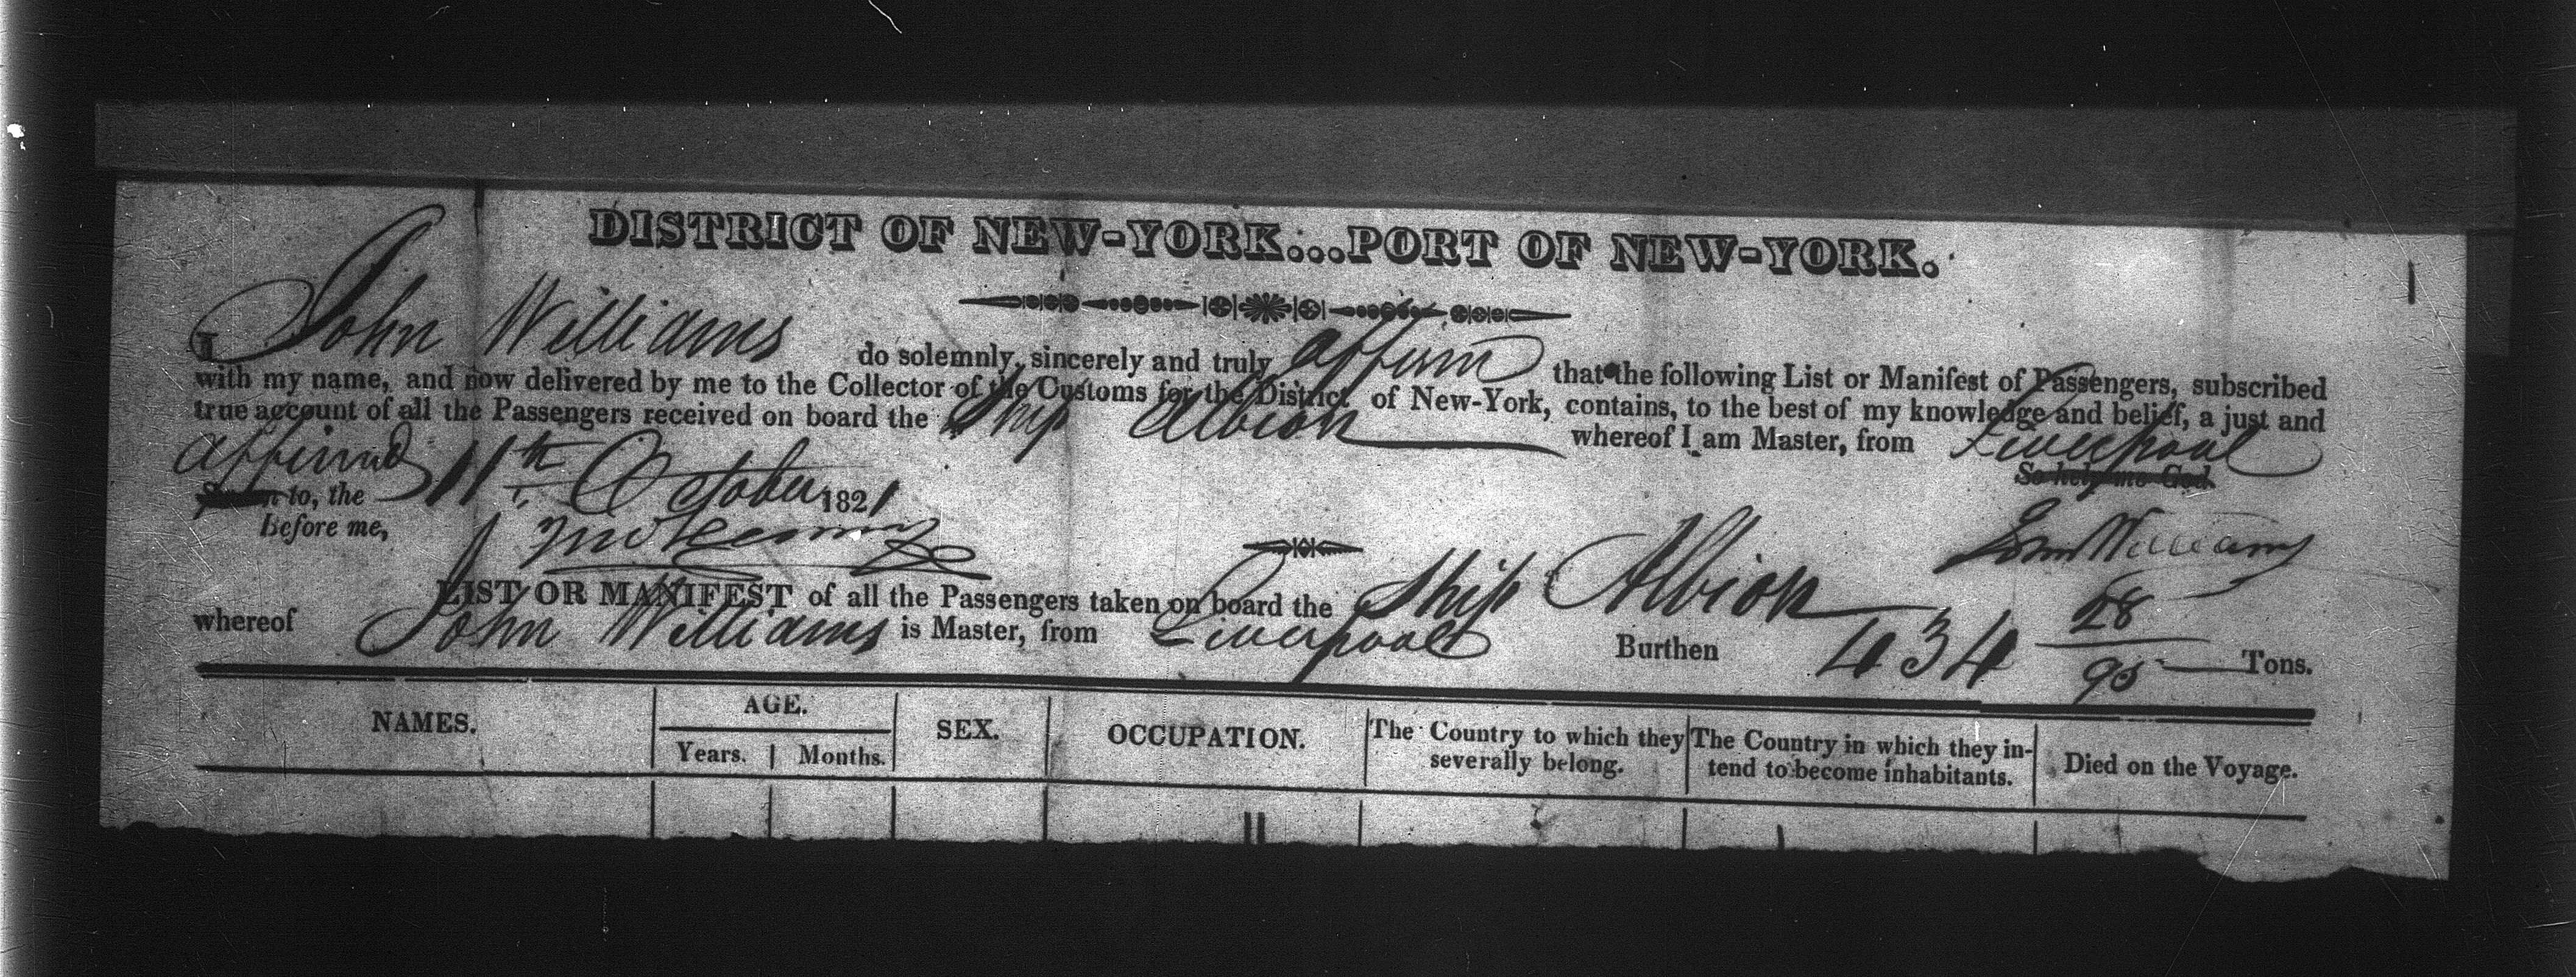 DISTRICT OF NEW-YORK...PORT OF NEW-YORK.
I John Williams do solemnly, sincerely and truly affirm that the following List or Manifest of Passengers, subscribed
with my name, and now delivered by me to the Collector of the Customs for the District of New-York, contains, to the best of my knowledge and belief, a just and
true account of all the Passengers received on board the Ship Albion whereof I am Master, from Liverpool
So help me God.
affirmed 11th October 1821
Sworn to, the
Before me,
John Williams
LIST OR MANIFEST of all the Passengers taken on board the Ship Albion
whereof John Williams is Master, from Liverpool Burthen 434 28/95 Tons.
NAMES. AGE. SEX. OCCUPATION. The Country to which they severally belong. The Country in which they in-
tend to become inhabitants. Died on the Voyage.
Years. Months.